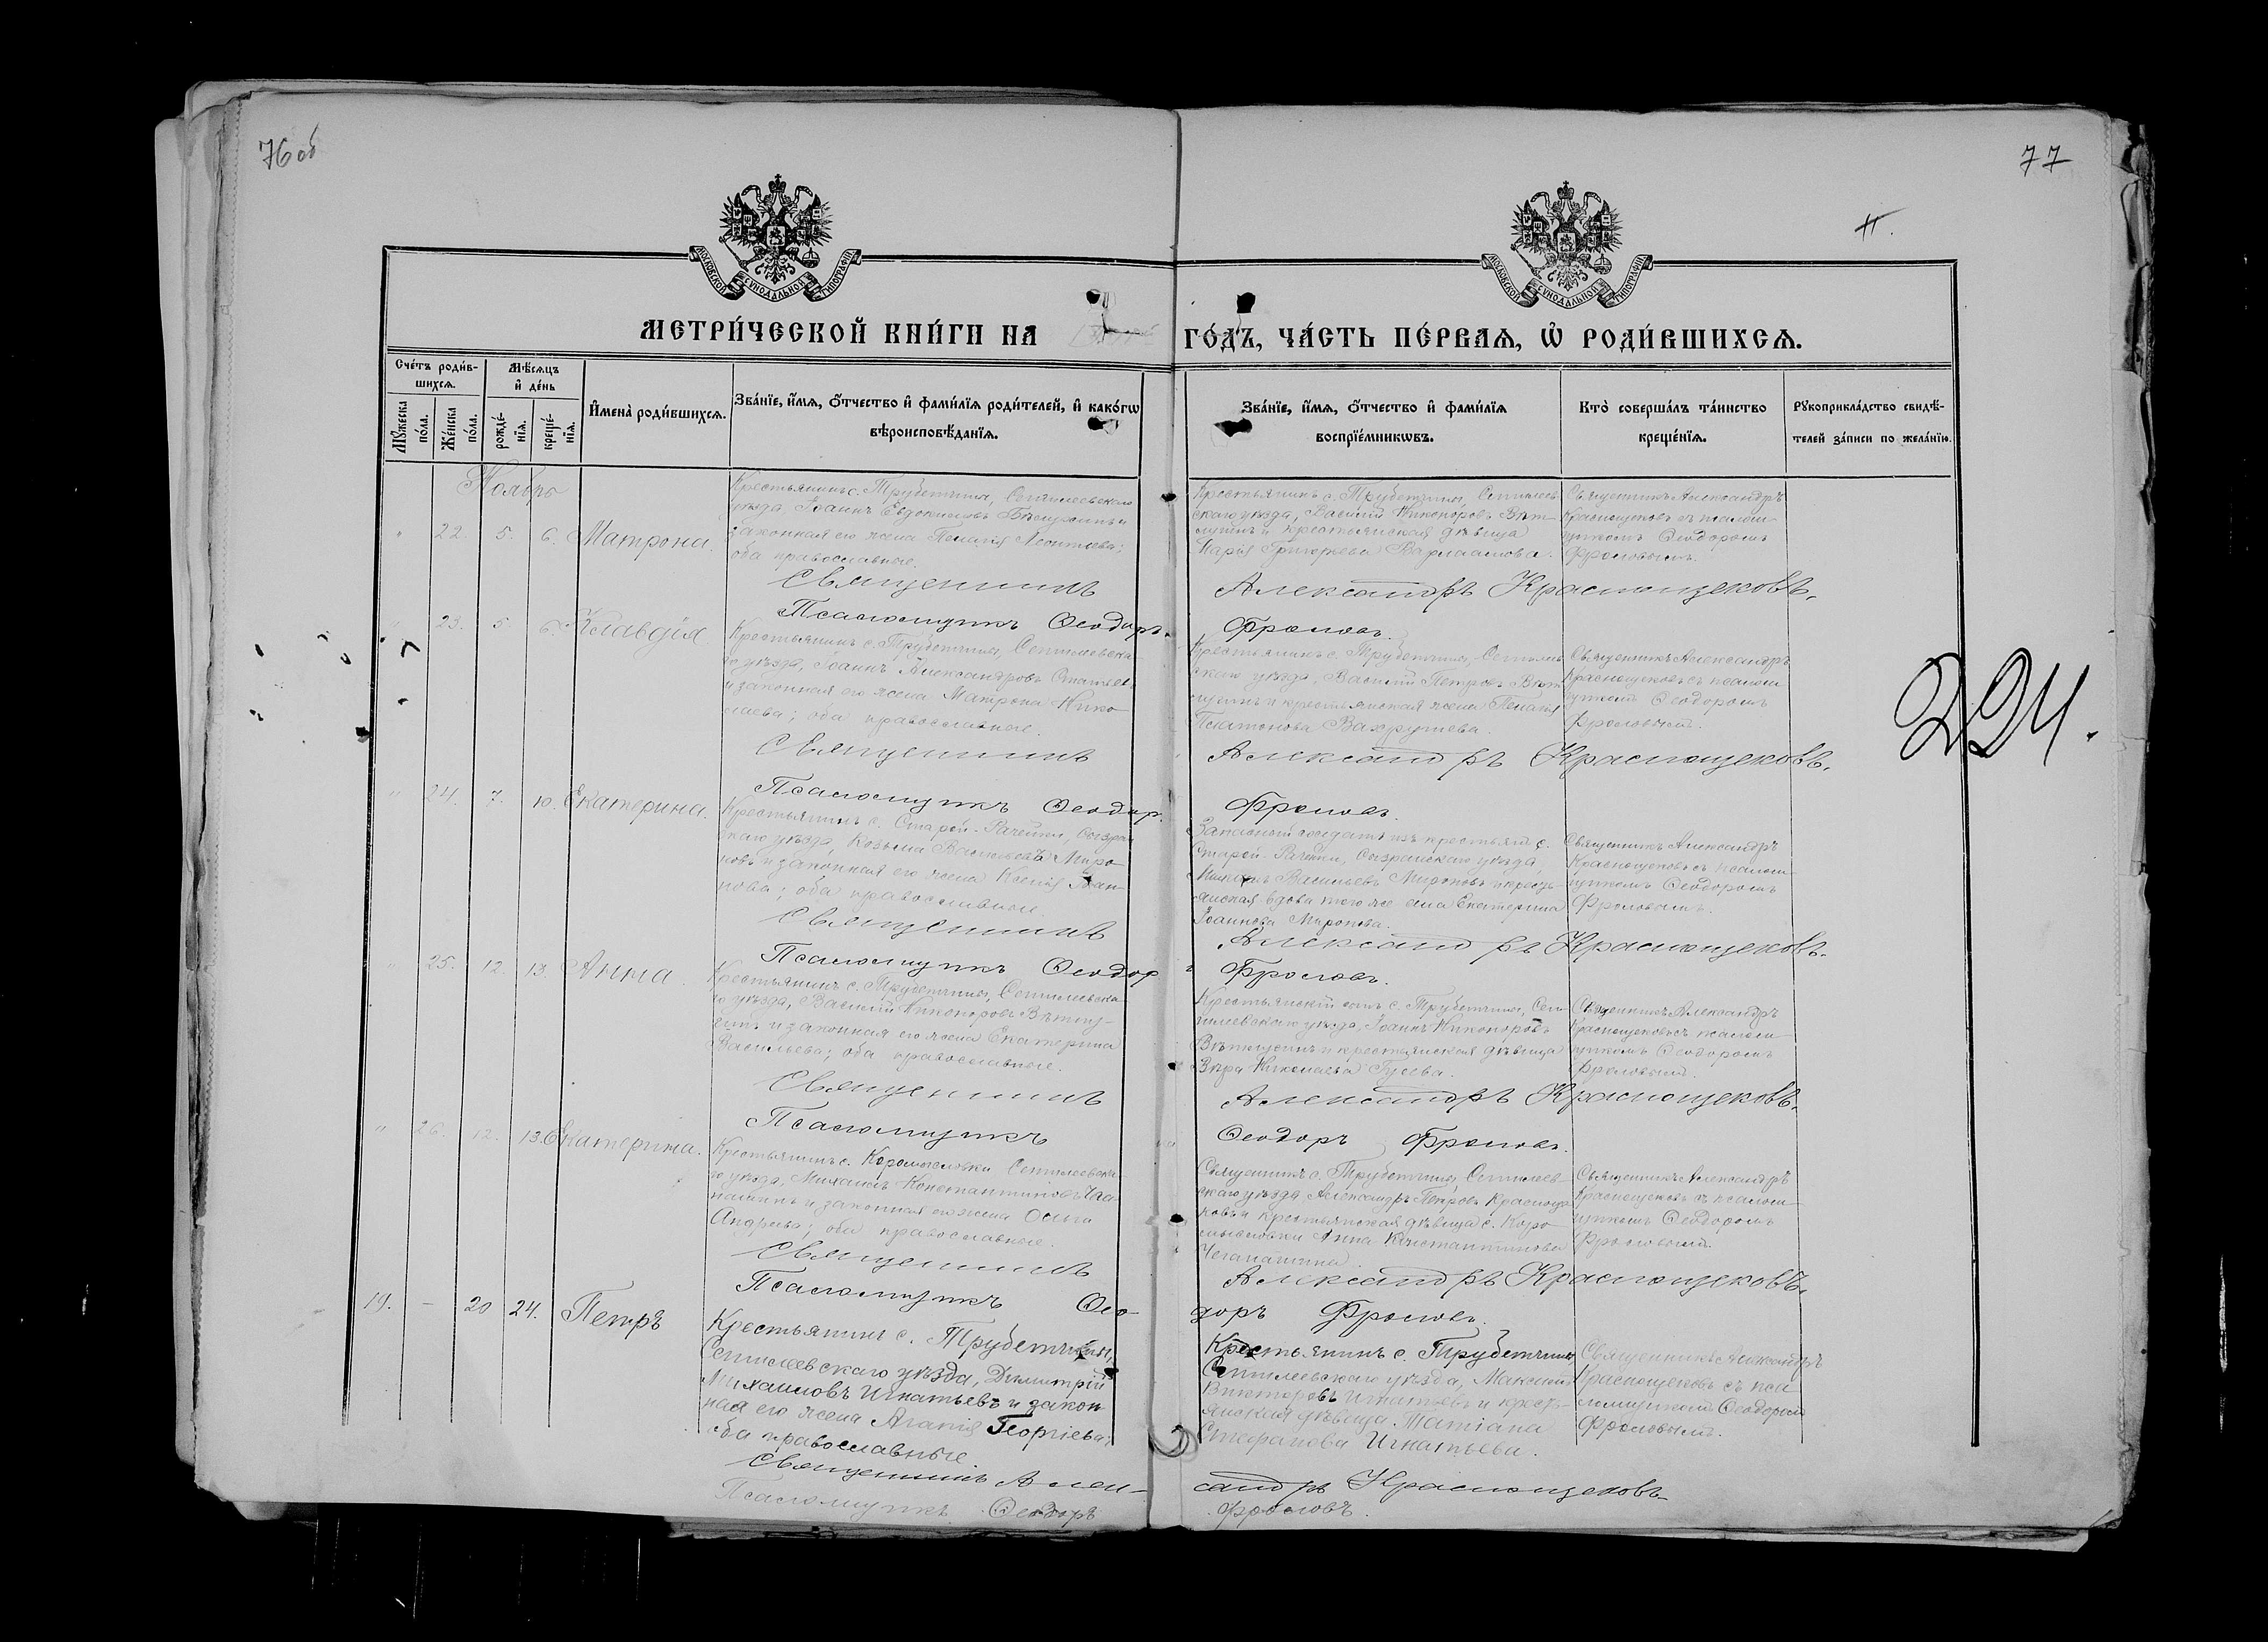 76 об
77
МОСКОВСКОЙ СѴНОДАЛЬНОЙ ТИПОГРАФІИ
МОСКОВСКОЙ СѴНОДАЛЬНОЙ ТИПОГРАФІИ
МЕТРИ́ЧЕСКОЙ КНИ́ГИ НА
ГО́ДЪ, ЧА́СТЬ ПЕ́РВАѦ, Ѡ РОДИ́ВШИХСѦ.
Сче́тъ роди́в-
шихсѧ.
Мѣ́сѧцъ
и҆ де́нь
Мꙋ́жеска
по́ла.
Же́нска
по́ла.
рожде́-
нїѧ.
креще́-
нїѧ.
И҆мена̀ роди́вшихсѧ.
Зва́нїе, и҆́мѧ, о҆́тчество и҆ фами́лїѧ роди́телей, и҆ како́гѡ
вѣроисповѣ́данїѧ.
Зва́нїе, и҆́мѧ, о҆́тчество и҆ фами́лїѧ
воспрїе́мникѡвъ.
Кто̀ соверша́лъ та́инство
креще́нїѧ.
Рꙋкоприкла́дство свидѣ́-
телей за́писи по жела́нїю.
Ноябрь
" 22. 5. 6. Матрона.
Крестьянинъ с. Трубетчины, Сенгилеевскаго
уѣзда, Іоаннъ Евдокимовъ и
законная его жена Пелагія Леонтьева;
оба православные.
Крестьянинъ с. Трубетчины, Сенгилеев-
скаго уѣзда, Василій Никоноровъ Вѣт-
лугинъ и крестьянская дѣвица
Марія Григорьева Варламова.
Священникъ Александръ
Краснощековъ съ псалом-
щикомъ Ѳеодоромъ
Фроловымъ.
Священникъ
Александръ Краснощековъ.
Псаломщикъ Ѳеодоръ
Фроловъ.
" 23. 5 6 Клавдія
Крестьянинъ с. Трубетчины, Сенгилеевска-
го уѣзда, Іоаннъ Александровъ
и законная его жена Матрона Нико-
лаева; оба православные.
Крестьянинъ с. Трубетчины, Сенгилеев-
скаго уѣзда, Василій Петровъ Вѣт-
лугинъ и крестьянская жена Пелагія
Платонова Вахрушева.
Священникъ Александръ
Краснощековъ съ псалом-
щикомъ Ѳеодоромъ
Фроловымъ.
Священникъ
Александръ Краснощековъ.
Псаломщикъ Ѳеодоръ
Фроловъ.
" 24. 7. 10. Екатерина.
Крестьянинъ с. Старой-Рачейки, Сызран-
скаго уѣзда, Козьма Васильевъ Миро-
новъ и законная его жена Ксенія Іоан-
нова; оба православные.
Запасный солдатъ изъ крестьянъ с.
Старой-Рачейки, Сызранскаго уѣзда,
Васильевъ Мироновъ и кресть-
янская вдова того же села Екатерина
Іоаннова Миронова.
Священникъ Александръ
Краснощековъ съ псалом-
щикомъ Ѳеодоромъ
Фроловымъ.
Священникъ
Александръ Краснощековъ.
Псаломщикъ Ѳеодоръ
Фроловъ.
" 25. 12. 13. Анна.
Крестьянинъ с. Трубетчины, Сенгилеевска-
го уѣзда, Василій Никоноровъ Вѣтлу-
гинъ и законная его жена Екатерина
Васильева; оба православные.
Крестьянскій сынъ с. Трубетчины, Сен-
гилеевскаго уѣзда, Іоаннъ Никоноровъ
Вѣтлугинъ и крестьянская дѣвица
Вѣра Николаева Гусева.
Священникъ Александръ
Краснощековъ съ псалом-
щикомъ Ѳеодоромъ
Фроловымъ.
Священникъ
Александръ Краснощековъ.
Псаломщикъ
Ѳеодоръ Фроловъ.
" 26. 12. 13. Екатерина.
Крестьянинъ с. Коромысловки Сенгилеевска-
го уѣзда, Михаилъ Константиновъ
и законная его жена Ольга
Андреева; оба православные.
Священникъ с. Трубетчины, Сенгилеев-
скаго уѣзда, Александръ Петровъ Красноще-
ковъ и крестьянская дѣвица с. Коро-
мысловки Анна Константинова
Чегаташина.
Священникъ Александръ
Краснощековъ съ псалом-
щикомъ Ѳеодоромъ
Фроловымъ.
Священникъ
Александръ Краснощековъ.
Псаломщикъ Ѳео-
доръ Фроловъ.
19. — 20 24. Петръ
Крестьянинъ с. Трубетчины,
Сенгилеевскаго уѣзда, Димитрій
Михаиловъ Игнатьевъ и закон-
ная его жена Агапія Георгіева;
оба православные.
Крестьянинъ с. Трубетчины
Сенгилеевскаго уѣзда, Максимъ
Викторовъ Игнатьевъ и кресть-
янская дѣвица Татіана
Стефанова Игнатьева.
Священникъ Александръ
Краснощековъ съ пса-
ломщикомъ Ѳеодоромъ
Фроловымъ.
Священникъ Алек-
сандръ Краснощековъ
Псаломщикъ Ѳеодоръ
Фроловъ.
224.